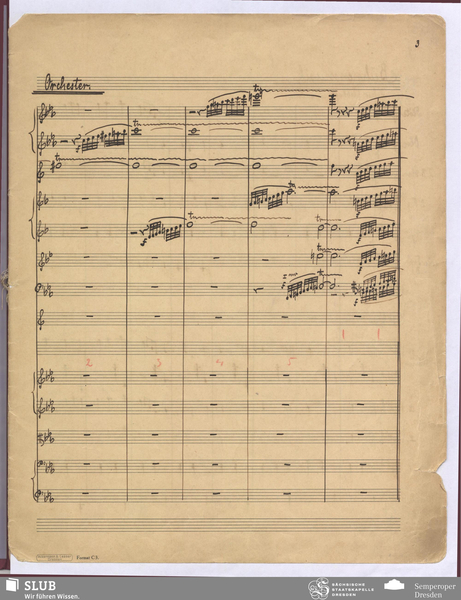 3
Orchester.
tr
tr
tr
tr
tr
tr
tr
tr
f
f
f
f
f
2 3 4 5 1 1
Format C.5
SLUB
Wir führen Wissen.
SÄCHSISCHE
STAATSKAPELLE
DRESDEN
Semperoper
Dresden